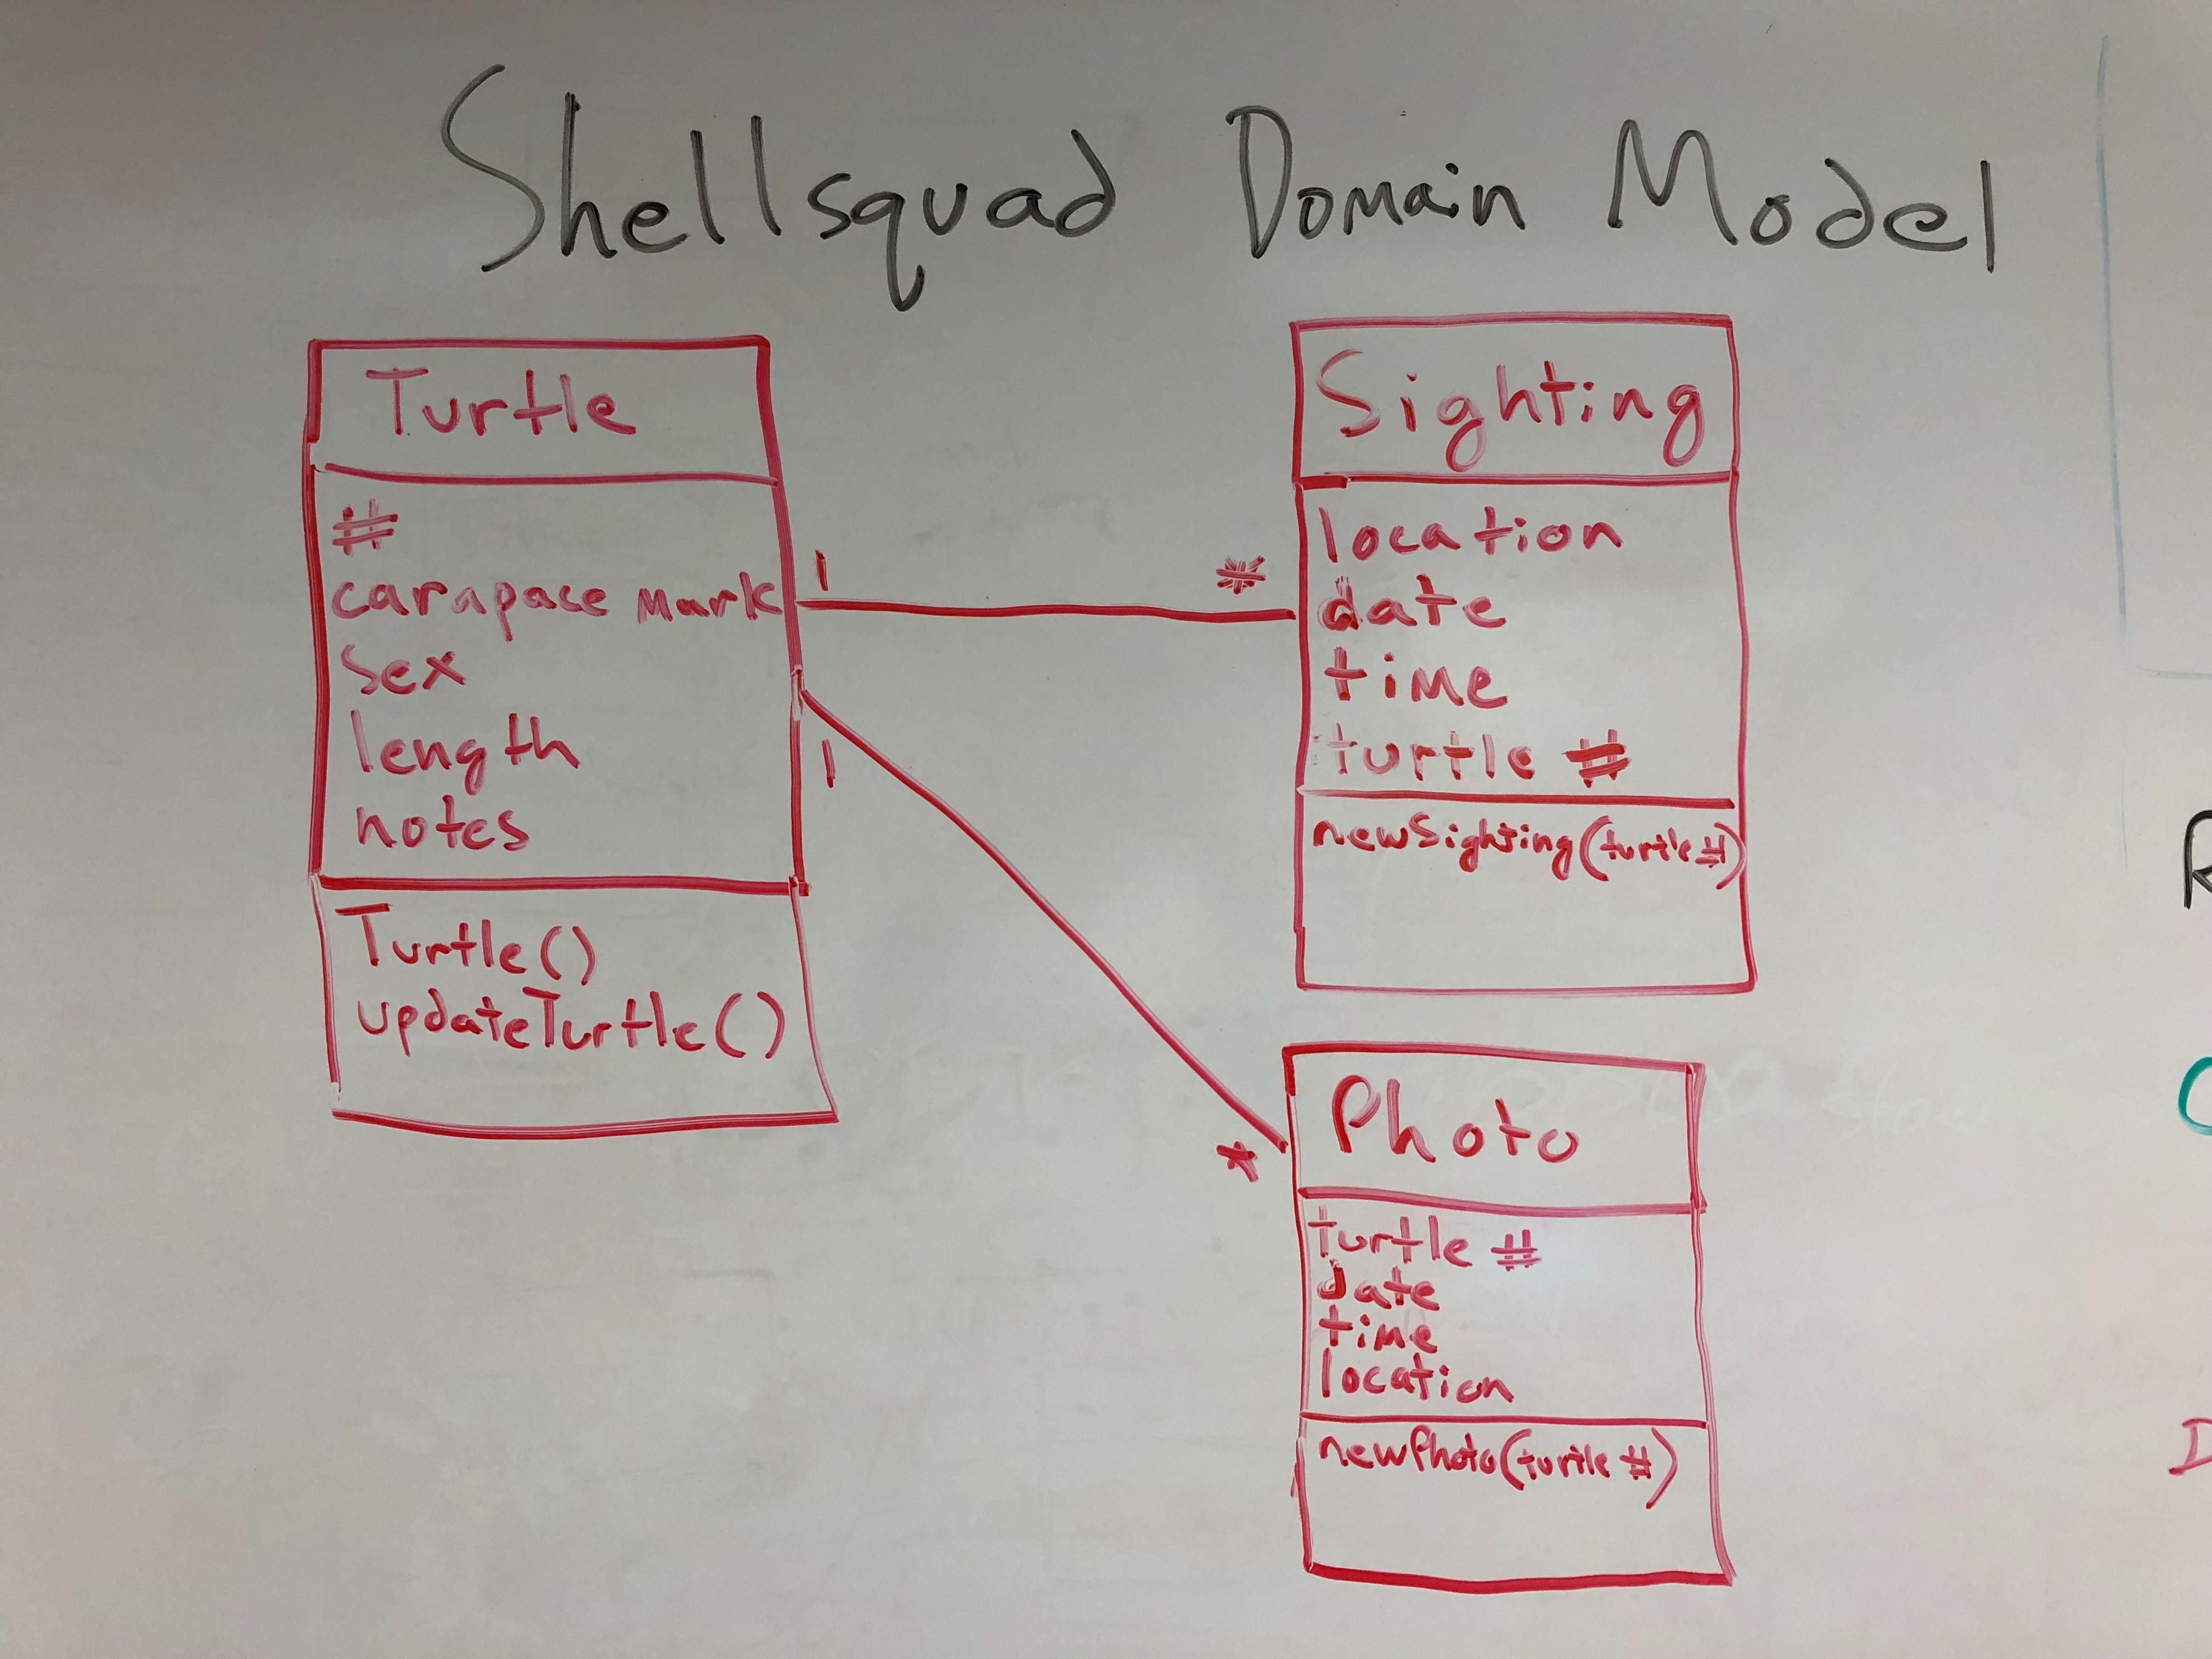 Shellsquad Domain Model
Turtle
#
carapace mark
sex
length
notes
Turtle()
updateTurtle()
1
*
1
*
Sighting
location
date
time
turtle #
newSighting(turtle #)
Photo
turtle #
date
time
location
newPhoto(turtle #)
R
D